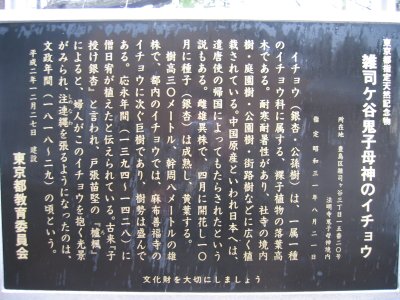 東京都指定天然記念物
雑司ケ谷鬼子母神のイチョウ
所在地 豊島区雑司ケ谷三丁目一五番二〇号
法明寺鬼子母神境内
指定 昭和三一年八月二一日
イチョウ(銀杏・公孫樹)は、一属一種
のイチョウ科に属する、裸子植物の落葉高
木である。耐寒耐暑性があり、社寺の境内
樹・庭園樹・公園樹・街路樹などに広く植
栽されている。中国原産といわれ日本へは、
遣唐使の帰国によってもたらされたという
説もある。雌雄異株で、四月に開花し一〇
月に種子(銀杏)は成熟し、黄葉する。
樹高三〇メートル、幹周八メートルの雄
株で、都内のイチョウでは、麻布善福寺の
イチョウに次ぐ巨樹であり、樹勢は盛んで
ある。応永年間(一三九四〜一四二八)に
僧日宥が植えたと伝えられている。古来「子
授け銀杏」と言われ、戸張苗堅の『櫨楓』
によると、婦人がこのイチョウを抱く光景
がみられ、注連縄を張るようになったのは、
文政年間(一八一八〜二九)の頃という。
平成二年一二月二七日 建設
東京都教育委員会
文化財を大切にしましょう